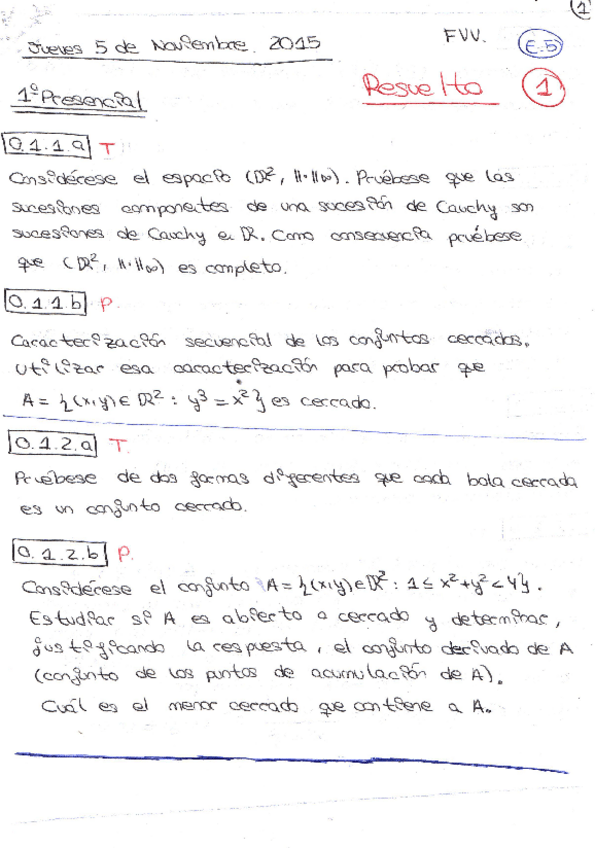 1
Jueves 5 de Noviembre. 2015
FVV.
E.5
Resuelto 1
1º Presencial
0.1.1.a T
Considérese el espacio (ℝ², ||·||∞). Pruébese que las
sucesiones componentes de una sucesión de Cauchy son
sucesiones de Cauchy en ℝ. Como consecuencia pruébese
que (ℝ², ||·||∞) es completo.
0.1.1b P.
Caracterización secuencial de los conjuntos cerrados.
Utilizar esa caracterización para probar que
A = {(x,y) ∈ ℝ² : y³ = x²} es cerrado.
0.1.2.a T.
Pruébese de dos formas diferentes que cada bola cerrada
es un conjunto cerrado.
0.1.2.b P.
Considérese el conjunto A = {(x,y) ∈ ℝ² : 1 ≤ x²+y² < 4}.
Estudiar si A es abierto o cerrado y determinar,
justificando la respuesta, el conjunto derivado de A
(conjunto de los puntos de acumulación de A).
Cuál es el menor cerrado que contiene a A.